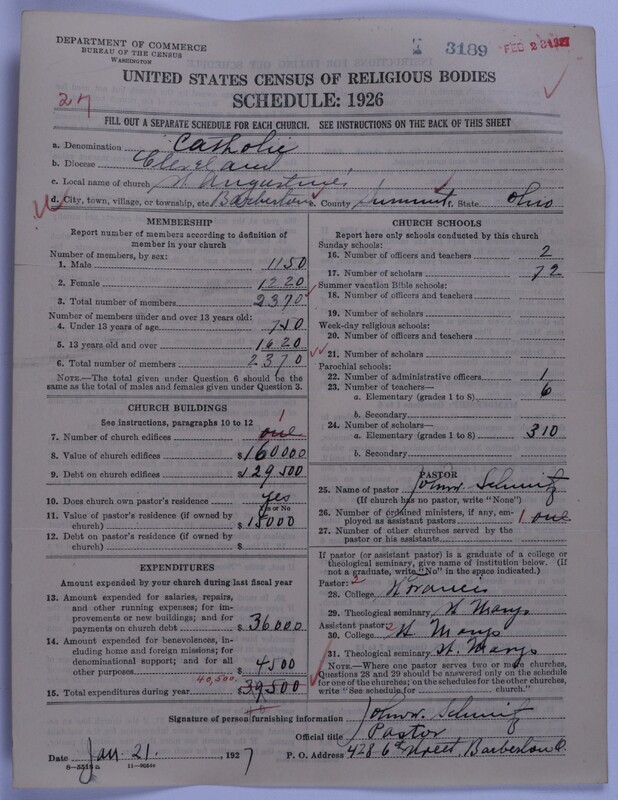 DEPARTMENT OF COMMERCE
BUREAU OF THE CENSUS
WASHINGTON
3189 FEB 23 1927
UNITED STATES CENSUS OF RELIGIOUS BODIES
SCHEDULE: 1926
27
FILL OUT A SEPARATE SCHEDULE FOR EACH CHURCH. SEE INSTRUCTIONS ON THE BACK OF THIS SHEET
a. Denomination Catholic
b. Diocese Cleveland
c. Local name of church St Augustines
d. City, town, village, or township, etc. Barberton e. County Summit f. State Ohio
MEMBERSHIP
Report number of members according to definition of
member in your church
Number of members, by sex:
1. Male 1150
2. Female 1220
3. Total number of members 2370
Number of members under and over 13 years old:
4. Under 13 years of age 750
5. 13 years old and over 1620
6. Total number of members 2370
NOTE.—The total given under Question 6 should be
same as the total of males and females given under Question 3.
CHURCH BUILDINGS
See instructions, paragraphs 10 to 12
1
7. Number of church edifices one
8. Value of church edifices $160000
9. Debt on church edifices $129500
10. Does church own pastor's residence yes
Yes or No
11. Value of pastor's residence (if owned by
church) $ 18000
12. Debt on pastor's residence (if owned by
church) $
EXPENDITURES
Amount expended by your church during last fiscal year
13. Amount expended for salaries, repairs,
and other running expenses; for im-
provements or new buildings; and for
payments on church debt $ 36000
14. Amount expended for benevolences, in-
cluding home and foreign missions; for
denominational support; and for all
other purposes $ 4500
40,500.
15. Total expenditures during year $39,500
CHURCH SCHOOLS
Report here only schools conducted by this church
Sunday schools:
16. Number of officers and teachers 2
17. Number of scholars 72
Summer vacation Bible schools:
18. Number of officers and teachers
19. Number of scholars
Week-day religious schools:
20. Number of officers and teachers
21. Number of scholars
Parochial schools:
22. Number of administrative officers 1
23. Number of teachers—
a. Elementary (grades 1 to 8) 6
b. Secondary
24. Number of scholars—
a. Elementary (grades 1 to 8) 310
b. Secondary
PASTOR
25. Name of pastor John W. Schmitz
(If church has no pastor, write "None")
26. Number of ordained ministers, if any, em-
ployed as assistant pastors 1 one
27. Number of other churches served by the
pastor or his assistants
If pastor (or assistant pastor) is a graduate of a college or
theological seminary, give name of institution below. (If
not a graduate, write "No" in the space indicated.)
Pastor: 2
28. College St Francis
29. Theological seminary St Marys
Assistant pastor: 2
30. College St Marys
31. Theological seminary St. Marys
NOTE.—Where one pastor serves two or more churches,
Questions 28 and 29 should be answered only on the schedule
for one of the churches; on the schedules for the other churches,
write "See schedule for church."
Signature of person furnishing information John W. Schmitz
Official title Pastor
Date Jan. 21. , 1927 P. O. Address 428 6th Street, Barberton O.